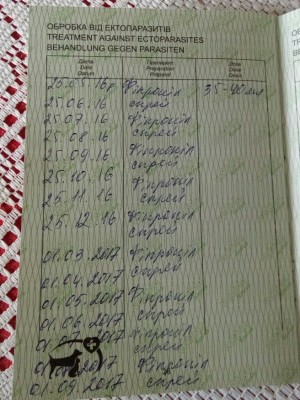 ОБРОБКА ВІД ЕКТОПАРАЗИТІВ
TREATMENT AGAINST ECTOPARASITES
BEHANDLUNG GEGEN PARASITEN
Дата Препарат Доза
Date Preparation Dose
Datum Präparat Dosis
25.05.16р Фіпроніл 35-40 мл
спрей
25.06.16 Фіпроніл
спрей
25.07.16 Фіпроніл
спрей
25.08.16 Фіпроніл
спрей
25.09.16 Фіпроніл
спрей
25.10.16 Фіпроніл
спрей
25.11.16 Фіпроніл
спрей
25.12.16 Фіпроніл
спрей
01.03.2017 Фіпроніл
спрей
01.04.2017
01.05.2017 Фіпроніл
спрей
01.06.2017
01.07.2017 Фіпроніл
спрей
2017 Фіпроніл
01.09.2017 спрей